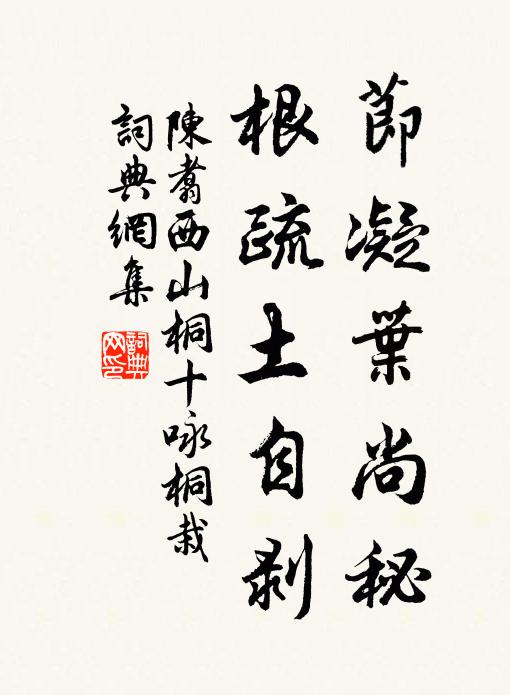 節凝葉尚秘
根疏土自剥
陳翥西山桐十咏桐栽
詞典網集
詞典网印